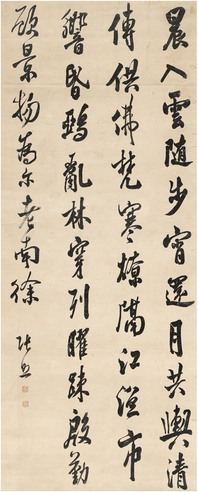 晨入雲隨步宵還月共輿清
傳供佛梵寒燎隔江漁市
響昏鴉亂林穿列曜疎殷勤
顧景物為尓老南徐 張照